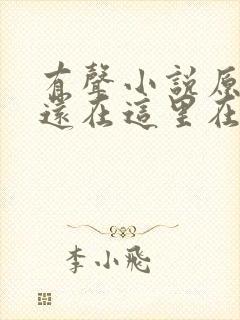 有聲小說原
還在這里在
李小飛